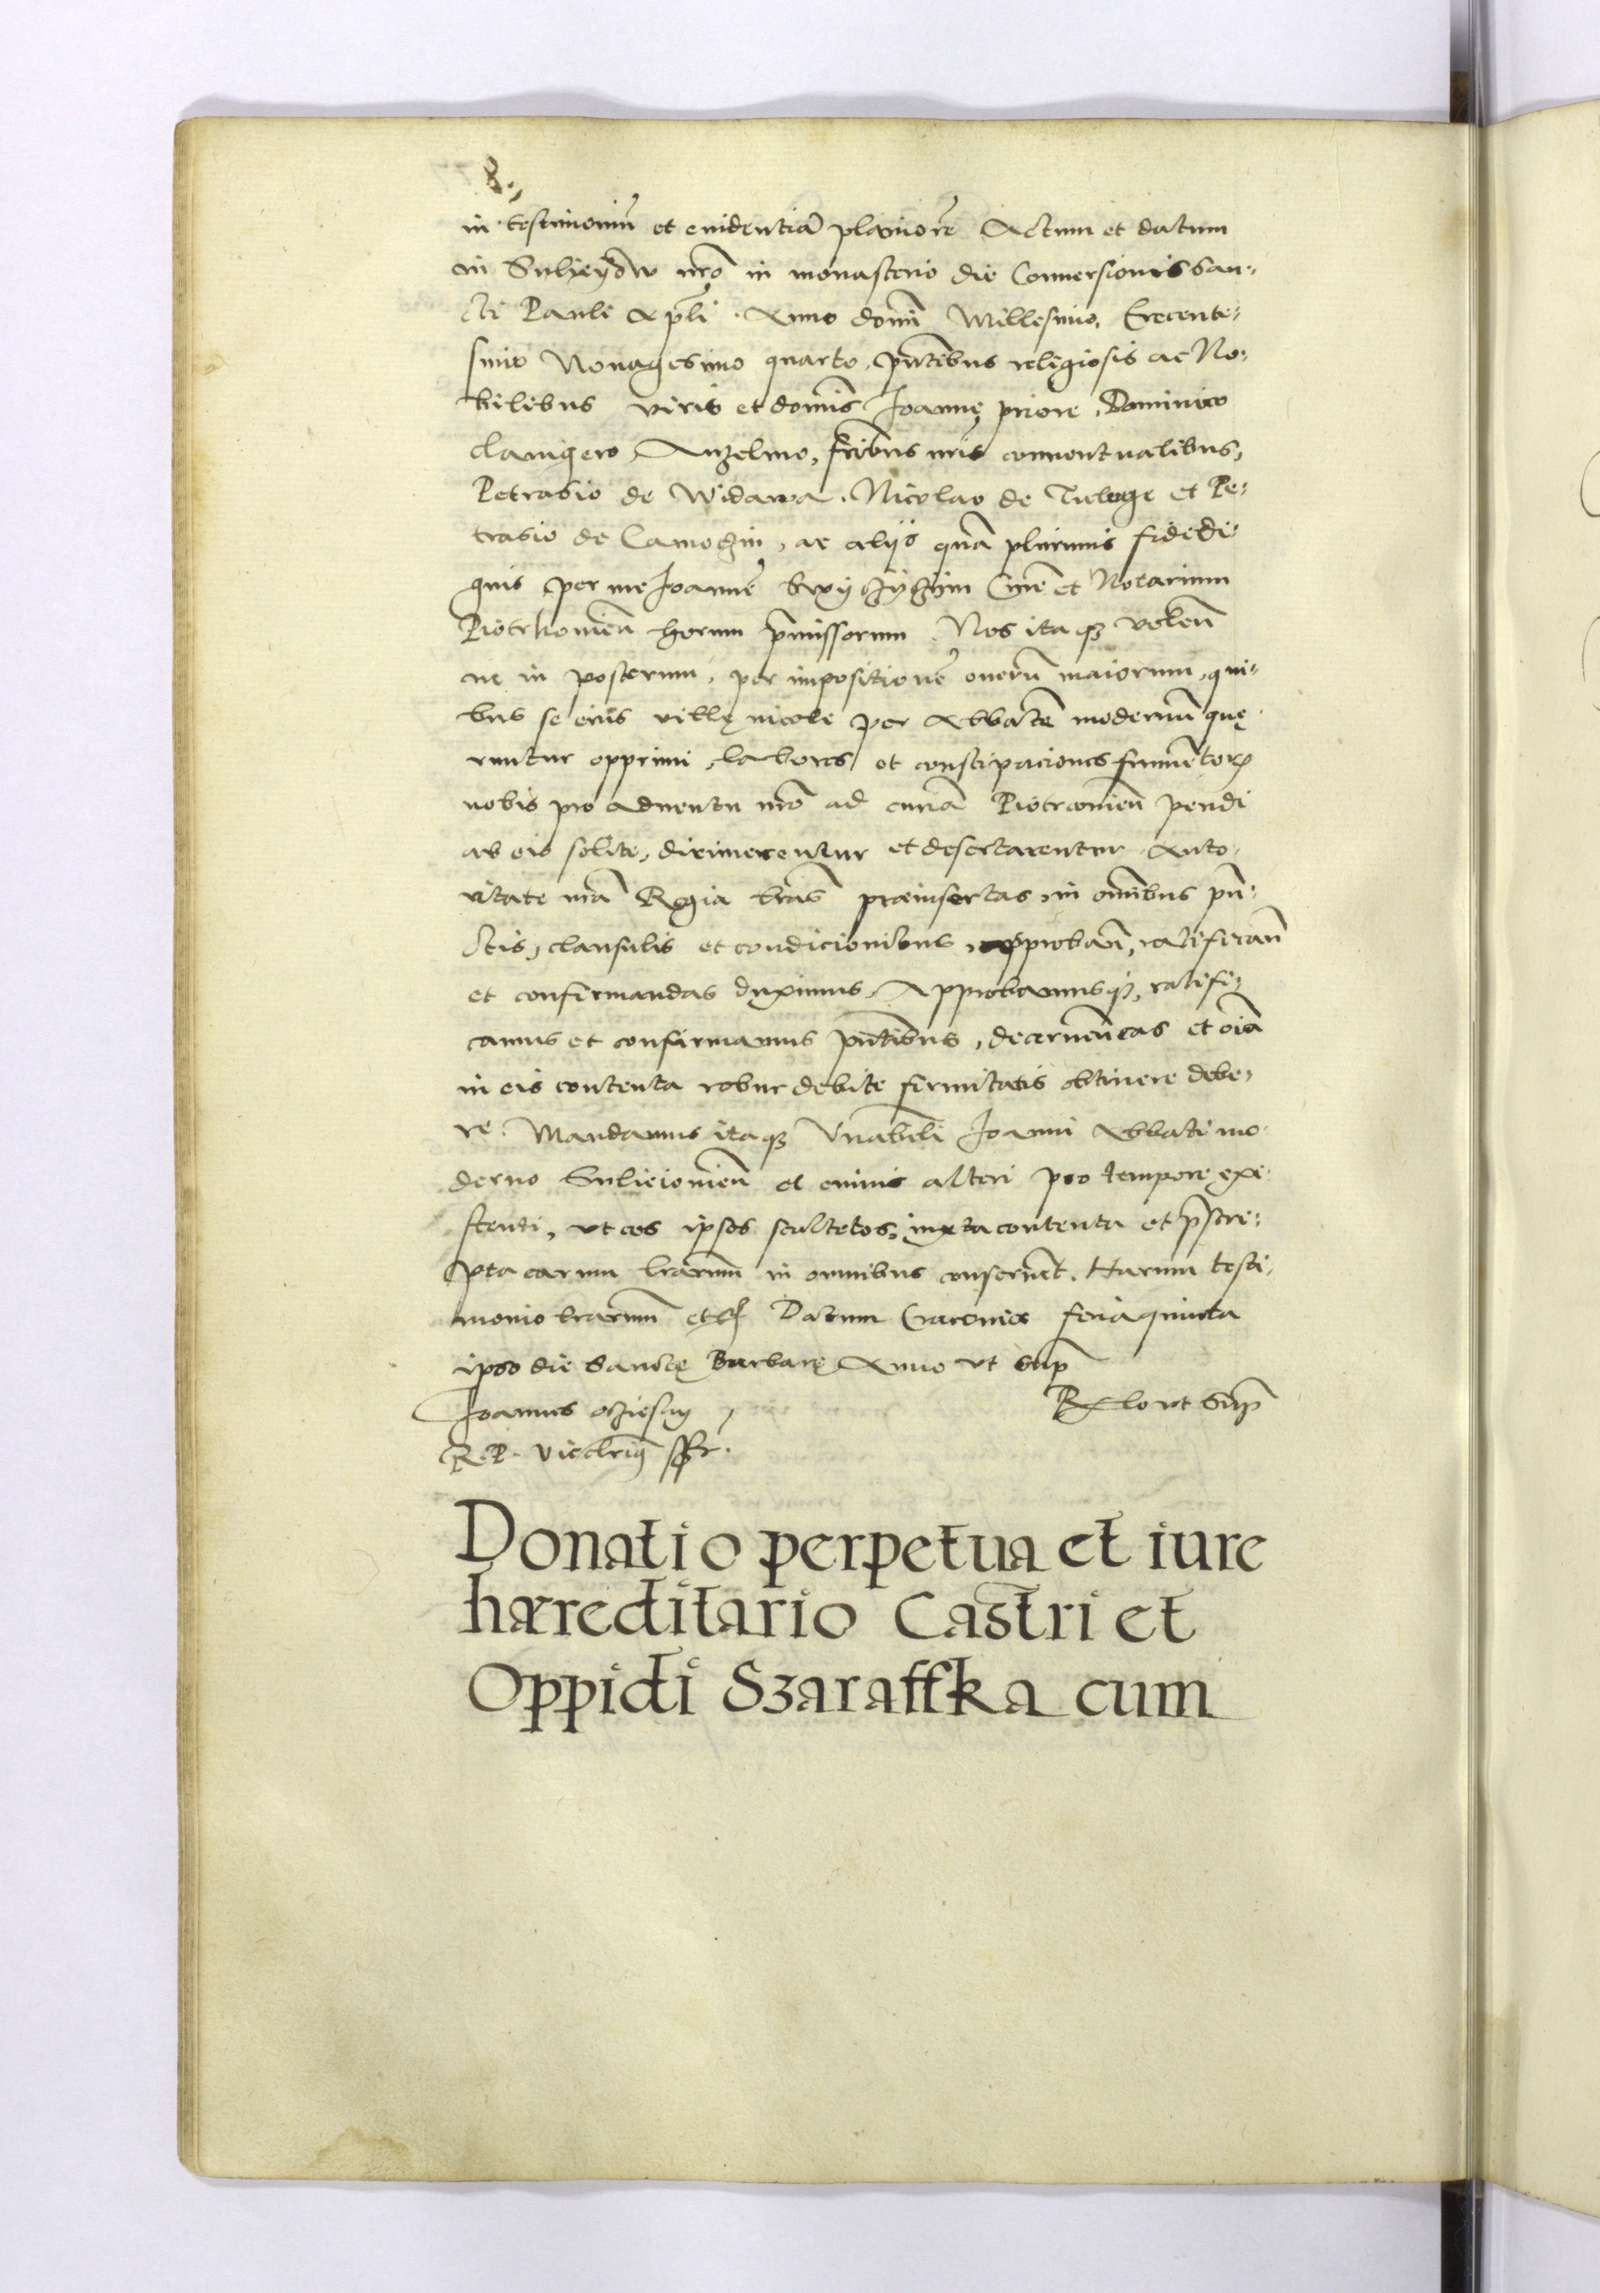 8.
in testimoniũ et euidentiã planiorẽ Actum et datum
in Suliejow nrõ in monasterio die Conuersionis San-
cti Pauli Apłi. Anno domĩ Millesimo, Trecente-
simo Nonagesimo quarto. pñtibus religiosis ac No-
bilibus viris et domĩs Joannę priore, Dominico
Clauigero, Anzelmo, fribus nris conuentualibus,
Petrasio de Widawa. Nicolao de et Pe-
trasio de ac alijs quã plurimis fidedi-
gnis per me Joannẽ et Notarium
Piotrkouieñ horum pmissorum. Nos itaqȝ voleñ
ne in posterum, per impositionẽ onerũ maiorum, qui-
bus se eius villę incole per Abbatẽ modernũ quę-
runtur opprimi, labores et constipaciones frumẽtorꝝ
nobis pro aduentu nrõ ad curiã Piotrcouieñ pendi
ab eis solite, dirimerentur et desertarentur. Auto-
ritate nrã Regia lrãs præinsertas in omĩbus pũ-
ctis, clausulis et condicionibus, approbañ, ratificañ
et confirmandas duximus. Approbamusqȝ, ratifi-
camus et confirmamus pñtibus, decerneñ eas et oĩa
in eis contenta robur debite firmitatis obtinere debe-
re. Mandamus itaqȝ Vnabili Joanni Abbati mo-
derno Sulieiouieñ et cuiuis alteri pro tempore exi-
stenti, vt eos ipsos scultetos, iuxta contenta et pscri-
pta earum lrarum in omnibus conseruet. Harum testi-
monio lrarum etc Datum Cracouiæ feria quinta
ipso die Sanctę Barbarę Anno vt sup
Joannus oczieski
R. P. Vicecanc̃ sst.
Relo vt sup
Donatio perpetua et iure
hæreditario Castri et
Oppidi Szaraffka cum